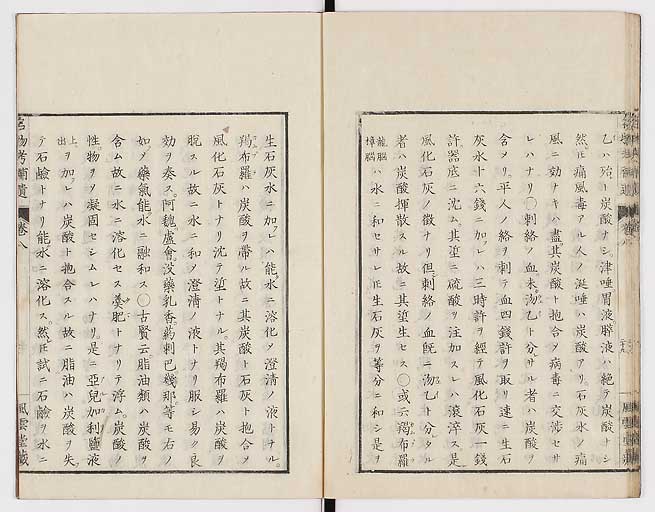 乙ハ殆ト炭酸ナシ津唾胃液膵液ハ絶テ炭酸ナシ
然モ痛風毒アル人ノ涎唾ハ炭酸アリ石灰水ノ痛
風ニ効ナキハ盡其炭酸ト抱合メ病毒ニ交渉セサ
レハナリ○刺絡ノ血未沕乙ト分サル者ハ炭酸ヲ
含メリ平人ノ絡ヲ刺テ血四錢許ヲ取リ速ニ生石
灰水十六錢ニ加レハ三時許ヲ經テ風化石灰一錢
許器底ニ沈ム其垽ニ硫酸ヲ注加スレハ滾滓ス是
風化石灰ノ徴ナリ但刺絡ノ血既ニ沕乙ト分タル
者ハ炭酸揮散スル故ニ其垽生セス○或云羯布羅
龍脳
樟脳
ハ水ニ和セサレモ生石灰ヲ等分ニ和シ是ヲ
生石灰水ニ加レハ能水ニ溶化メ澄清ノ液トナル
羯布羅ハ炭酸ヲ帶ル故ニ其炭酸ト石灰ト抱合メ
風化石灰トナリ沈テ垽トナル其羯布羅ハ炭酸ヲ
脱スル故ニ水ニ和メ澄清ノ液トナリ服シ易ク良
効ヲ奏ス阿魏盧會没藥乳香葯剌巴幾那等モ右ノ
如メ藥氣能水ニ融和ス○古賢云脂油類ハ炭酸ヲ
含ム故ニ水ニ溶化セス羹肥トナリテ浮ム炭酸ノ
性物ヲメ凝固セシムレハナリ是ニ亞兒加利鹽液
上ニ
出
ヲ加レハ炭酸ト抱合スル故ニ脂油ハ炭酸ヲ失
テ石鹼トナリ能水ニ溶化ス然モ試ニ石鹼ヲ水ニ
名物考補遺 卷八
風雲堂藏